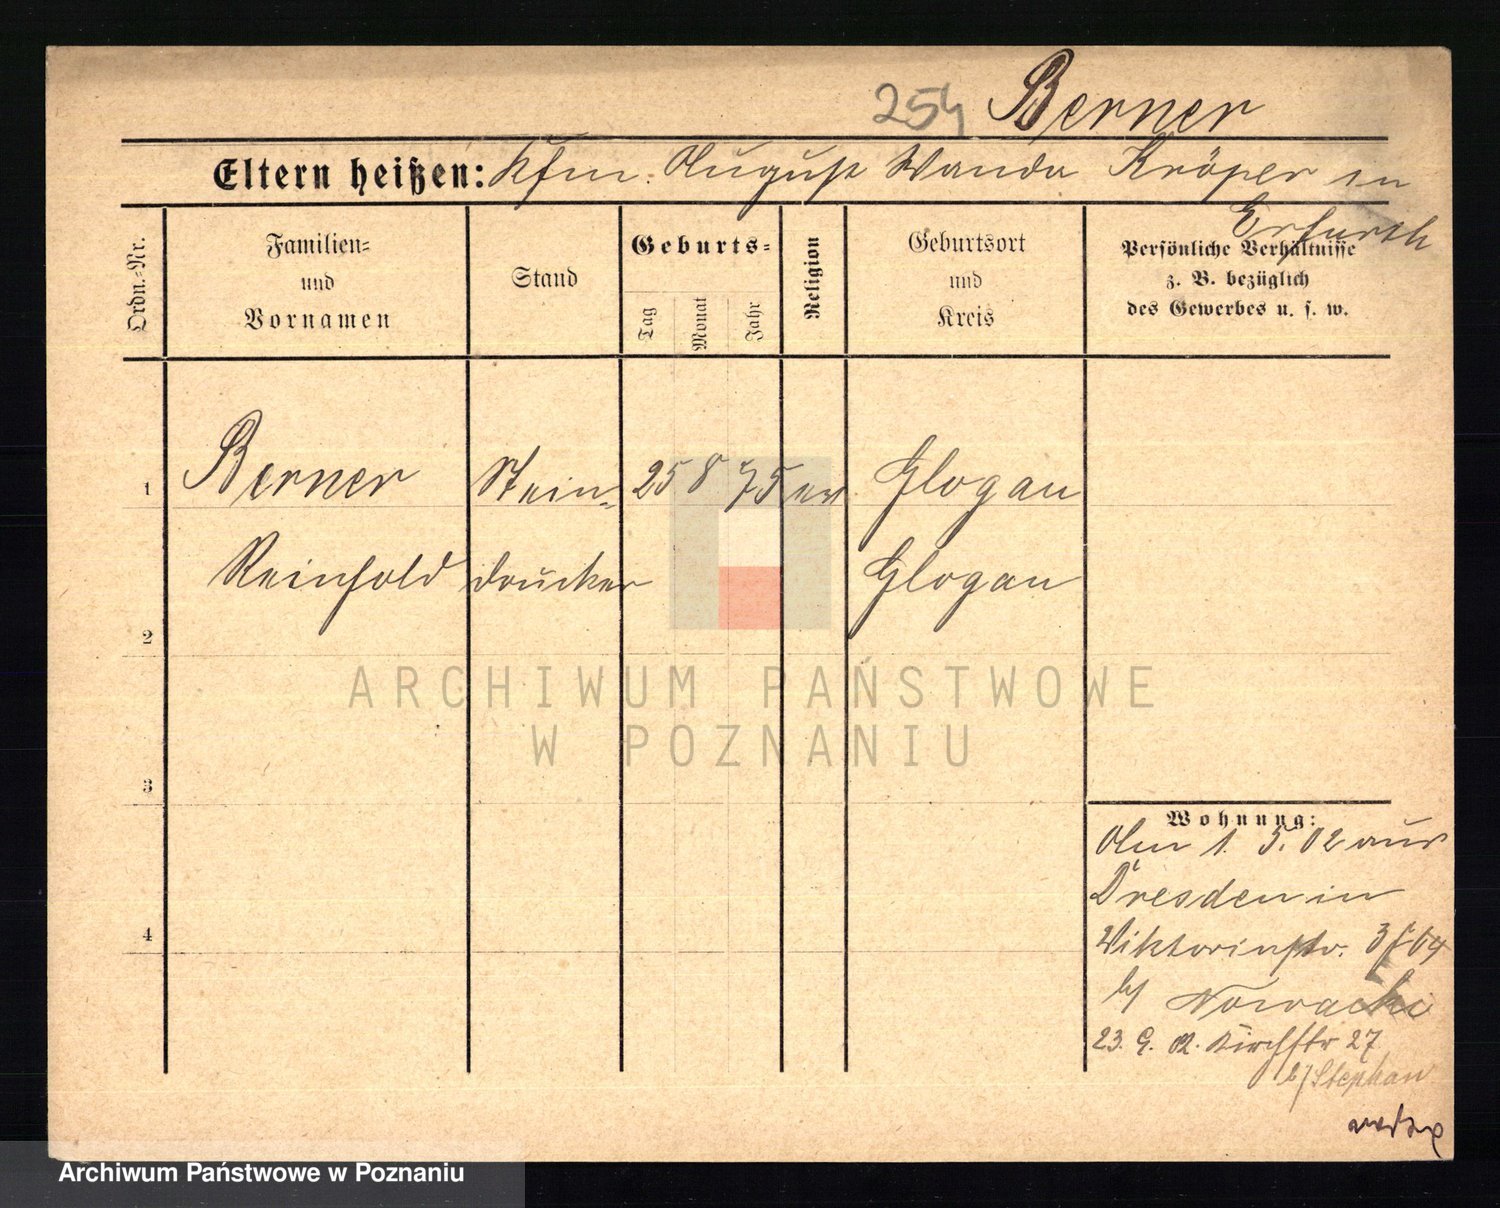 254 Berner
Eltern heißen: Kfm. August Wanda Kröper in
Erfurth
Ordn.-Nr.
Familien-
und
Vornamen
Stand
Geburts-
Tag
Monat
Jahr
Religion
Geburtsort
und
Kreis
Persönliche Verhältnisse
z. B. bezüglich
des Gewerbes u. s. w.
1 Berner Stein- 25 8 75 ev Glogau
Reinhold drucker Glogau
2
3
4
Wohnung:
Am 1. 5. 02 aus
Dresden in
Viktoriastr.
b/ Nowacki
23. 9. 02. Kirchstr 27
b/ Stephan
ARCHIWUM PAŃSTWOWE
W POZNANIU
Archiwum Państwowe w Poznaniu